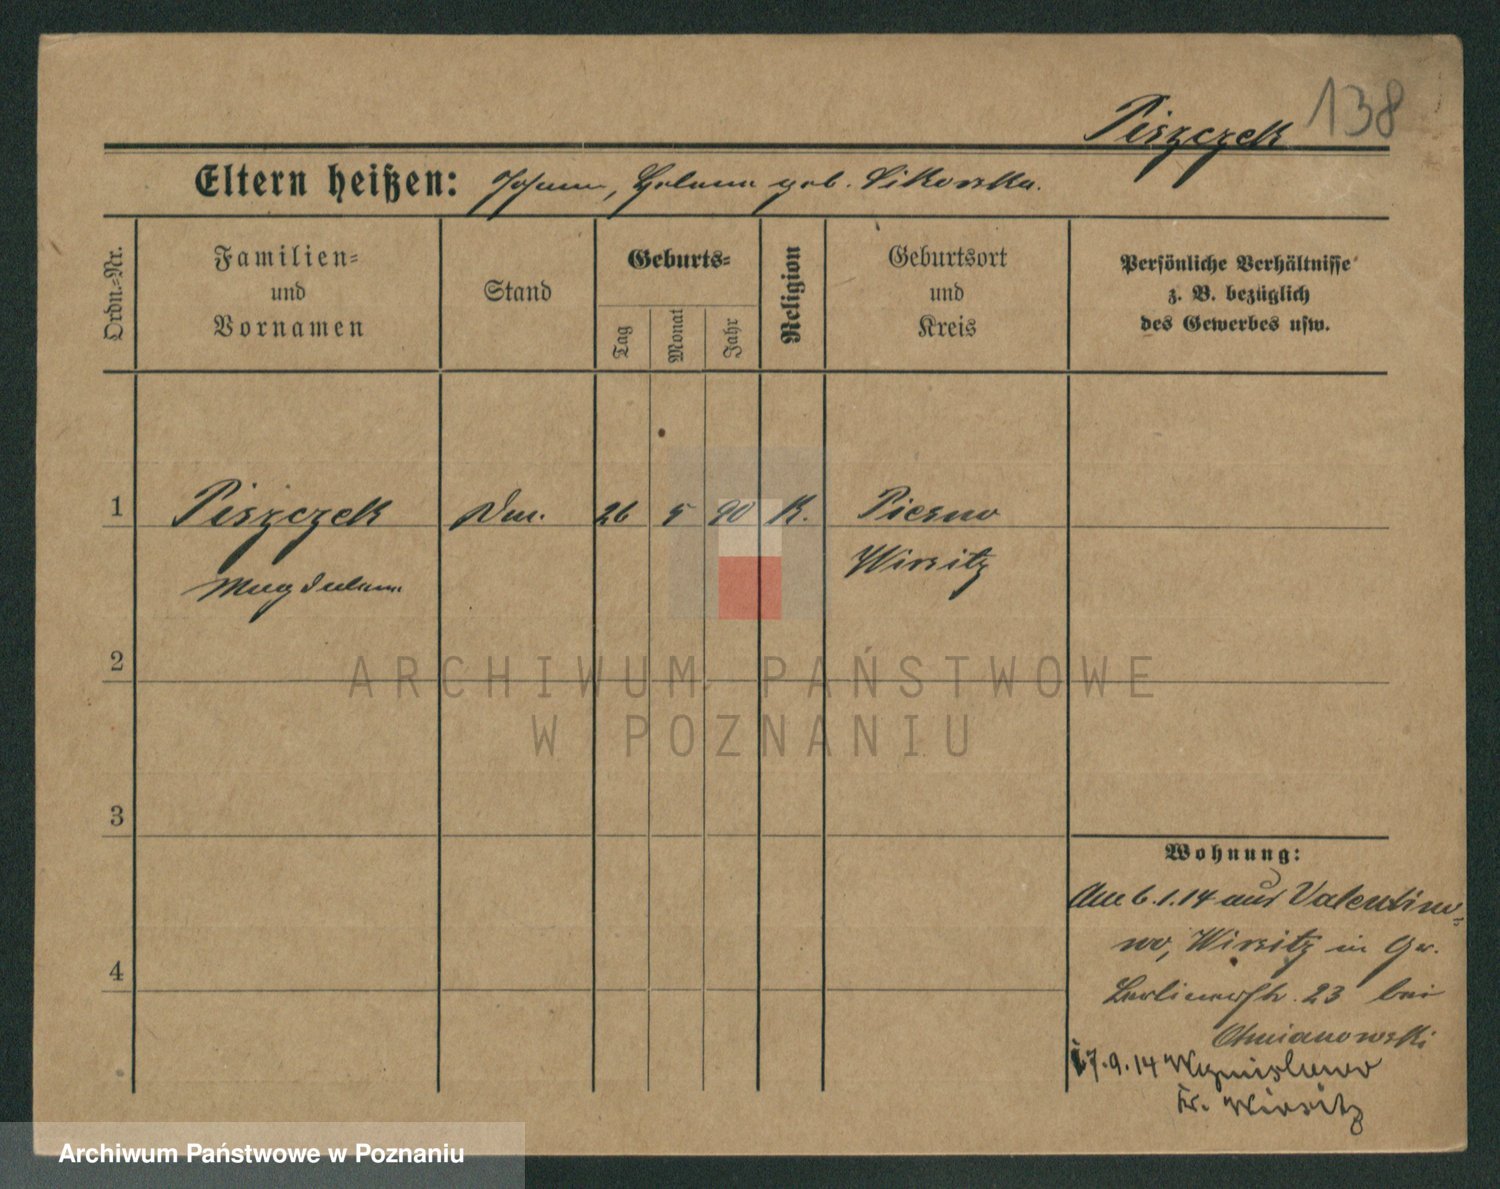 138
Piszczek
Eltern heißen: Johann, Helena geb. Sikorska.
Ordn.-Nr.
Familien-
und
Vornamen
Stand
Geburts-
Tag
Monat
Jahr
Religion
Geburtsort
und
Kreis
Persönliche Verhältnisse
z. B. bezüglich
des Gewerbes usw.
1
Piszczek
26 5 90 K.
Piesno
Magdalena
Wirsitz
2
ARCHIWUM PAŃSTWOWE
W POZNANIU
3
Wohnung:
Am 6.1.14 aus Valentino-
wo, Wirsitz in
Berlinerstr. 23 bei
Chmianowski
17.9.14
Kr. Wirsitz
4
Archiwum Państwowe w Poznaniu